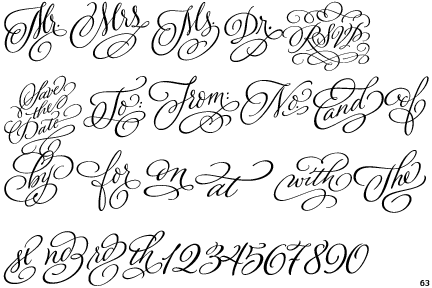 Mr. Mrs. Ms. Dr. RSVP
Save the Date To: From: No. and of
by for on at with the
st nd rd th 1234567890
63